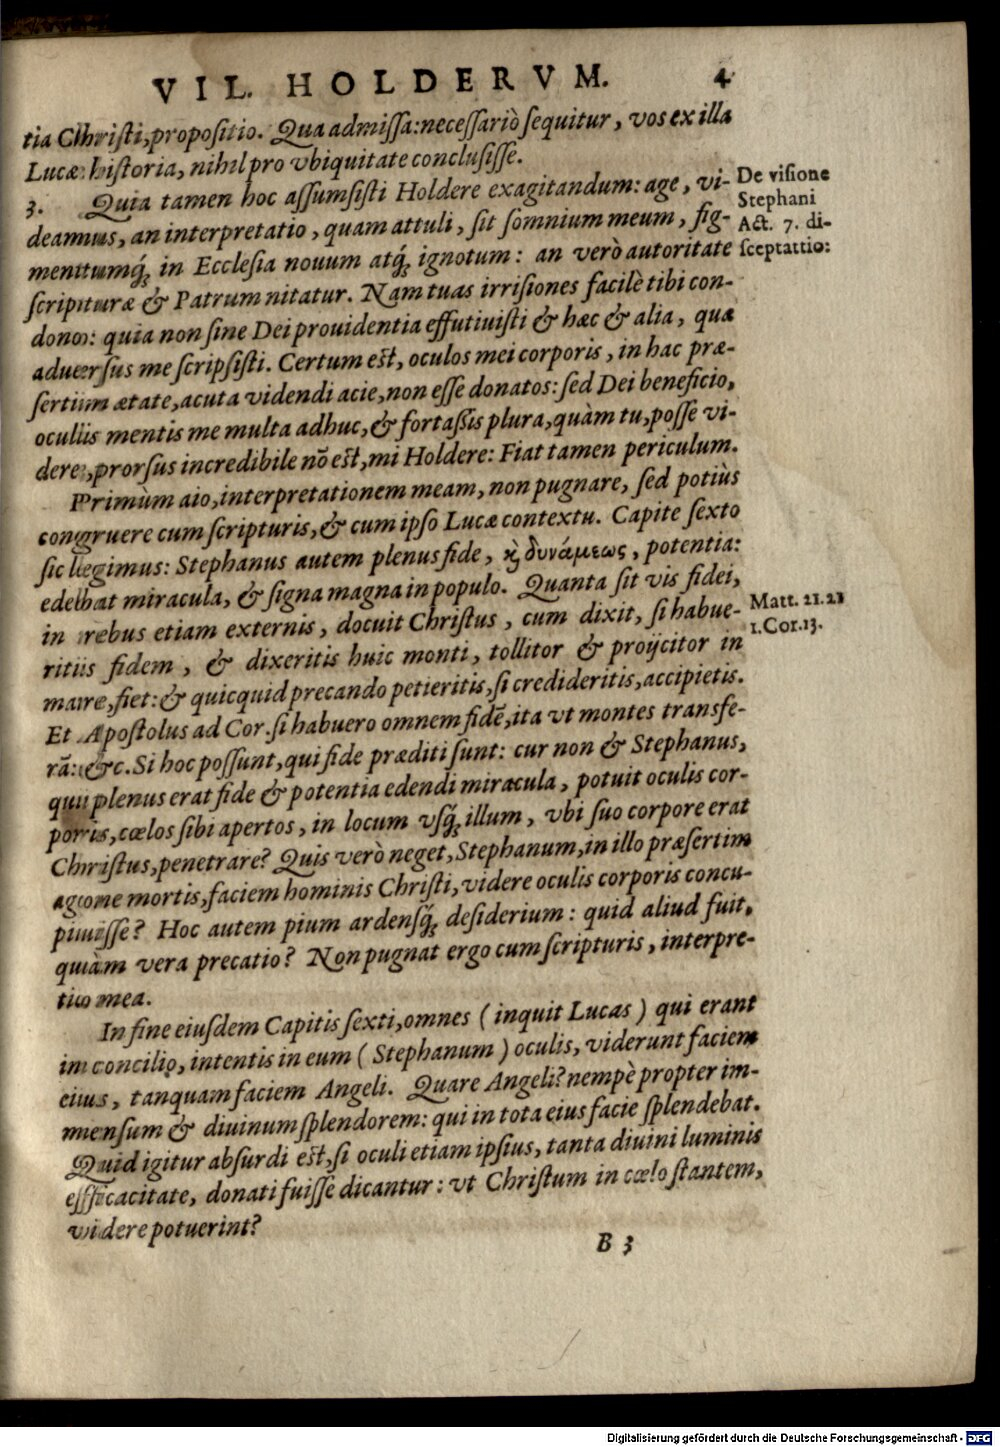 VIL. HOLDERVM. 4
tia Christi, propositio. Qua admissa: necessariò sequitur, vos ex illa
Lucæ historia, nihil pro vbiquitate conclusisse.
3. Quia tamen hoc assumsisti Holdere exagitandum: age, vi-
deamus, an interpretatio, quam attuli, sit somnium meum, fig-
mentumq́; in Ecclesia nouum atq́; ignotum: an verò autoritate
scripturæ & Patrum nitatur. Nam tuas irrisiones facilè tibi con-
dono: quia non sine Dei prouidentia effutiuisti & hæc & alia, quæ
aduersus me scripsisti. Certum est, oculos mei corporis, in hac præ-
sertim ætate, acuta videndi acie, non esse donatos: sed Dei beneficio,
oculis mentis me multa adhuc, & fortassis plura, quàm tu, posse vi-
dere, prorsus incredibile nō est, mi Holdere: Fiat tamen periculum.
De visione
Stephani
Act. 7. di-
sceptattio:
Primùm aio, interpretationem meam, non pugnare, sed potiùs
congruere cum scripturis, & cum ipso Lucæ contextu. Capite sexto
sic legimus: Stephanus autem plenus fide, ϗ̀ δυνάμεως, potentia:
edebat miracula, & signa magna in populo. Quanta sit vis fidei,
in rebus etiam externis, docuit Christus, cum dixit, si habue-
ritis fidem, & dixeritis huic monti, tollitor & proijcitor in
mare, fiet: & quicquid precando petieritis, si credideritis, accipietis.
Et Apostolus ad Cor. si habuero omnem fidē, ita vt montes transfe-
rā: &c. Si hoc possunt, qui fide præditi sunt: cur non & Stephanus,
qui plenus erat fide & potentia edendi miracula, potuit oculis cor-
poris, cœlos sibi apertos, in locum vsq́; illum, vbi suo corpore erat
Christus, penetrare? Quis verò neget, Stephanum, in illo præsertim
agone mortis, faciem hominis Christi, videre oculis corporis concu-
piuisse? Hoc autem pium ardensq́; desiderium: quid aliud fuit,
quàm vera precatio? Non pugnat ergo cum scripturis, interpre-
tio mea.
Matt. 21.21
1. Cor. 13.
In fine eiusdem Capitis sexti, omnes ( inquit Lucas ) qui erant
in concilio, intentis in eum ( Stephanum ) oculis, viderunt faciem
eius, tanquam faciem Angeli. Quare Angeli? nempè propter im-
mensum & diuinum splendorem: qui in tota eius facie splendebat.
Quid igitur absurdi est, si oculi etiam ipsius, tanta diuini luminis
efficacitate, donati fuisse dicantur: vt Christum in cœlo stantem,
videre potuerint?
B 3
Digitalisierung gefördert durch die Deutsche Forschungsgemeinschaft - DFG